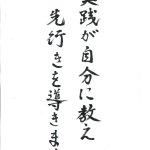 実践が自分に教え
先行きを導きま